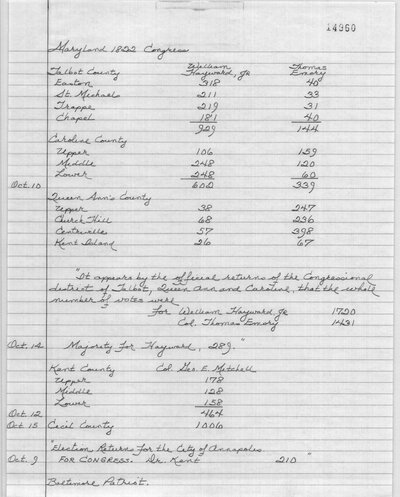 14960
Maryland 1822 Congress
William Thomas
Talbot County Hayward, Jr Emory
Easton 318 40
St. Michaels 211 33
Trappe 219 31
Chapel 181 40
929 144
Caroline County
Upper 106 159
Middle 248 120
Lower 248 60
Oct. 10 602 339
Queen Ann's County
Upper 38 247
Church Hill 68 236
Centreville 57 398
Kent Island 26 67
"It appears by the official returns of the Congressional
district of Talbot, Queen Ann and Caroline, that the whole
number of votes were
For William Hayward Jr 1720
Col. Thomas Emory 1431
Oct. 12 Majority for Hayward, 289."
Kent County Col Geo. E. Mitchell
Upper 178
Middle 128
Lower 158
Oct. 12 464
Oct. 15 Cecil County 1006
"Election Returns for the City of Annapolis.
Oct. 9 FOR CONGRESS. Dr. Kent 210 "
Baltimore Patriot.